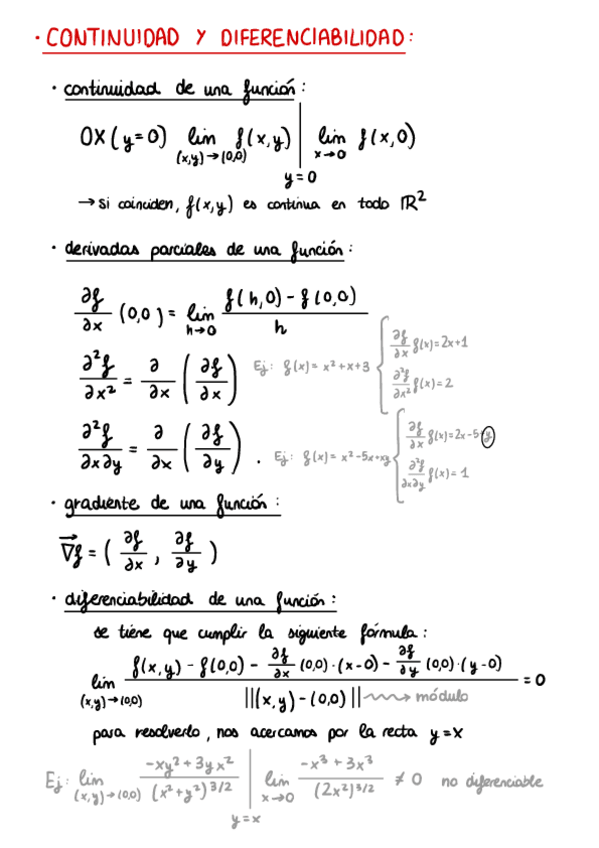 · CONTINUIDAD Y DIFERENCIABILIDAD:
· continuidad de una función:
OX (y=0) lim (x,y)→(0,0) f(x,y) | y=0 lim x→0 f(x,0)
→ si coinciden, f(x,y) es continua en todo ℝ²
· derivadas parciales de una función:
∂f/∂x (0,0) = lim h→0 (f(h,0) - f(0,0))/h
∂²f/∂x² = ∂/∂x (∂f/∂x) Ej: f(x) = x²+x+3 { ∂f/∂x f(x)=2x+1
∂²f/∂x² f(x)=2
∂²f/∂x∂y = ∂/∂x (∂f/∂y) . Ej: f(x) = x²-5x+xy { ∂f/∂x f(x)=2x-5+y
∂²f/∂x∂y f(x)=1
· gradiente de una función:
∇f = (∂f/∂x, ∂f/∂y)
· diferenciabilidad de una función:
se tiene que cumplir la siguiente fórmula:
lim (x,y)→(0,0) (f(x,y) - f(0,0) - ∂f/∂x (0,0)·(x-0) - ∂f/∂y (0,0)·(y-0))/||(x,y)-(0,0)|| = 0
módulo
para resolverlo, nos acercamos por la recta y=x
Ej: lim (x,y)→(0,0) (-xy²+3yx²)/(x²+y²)^3/2 | y=x lim x→0 (-x³+3x³)/(2x²)^3/2 ≠ 0 no diferenciable